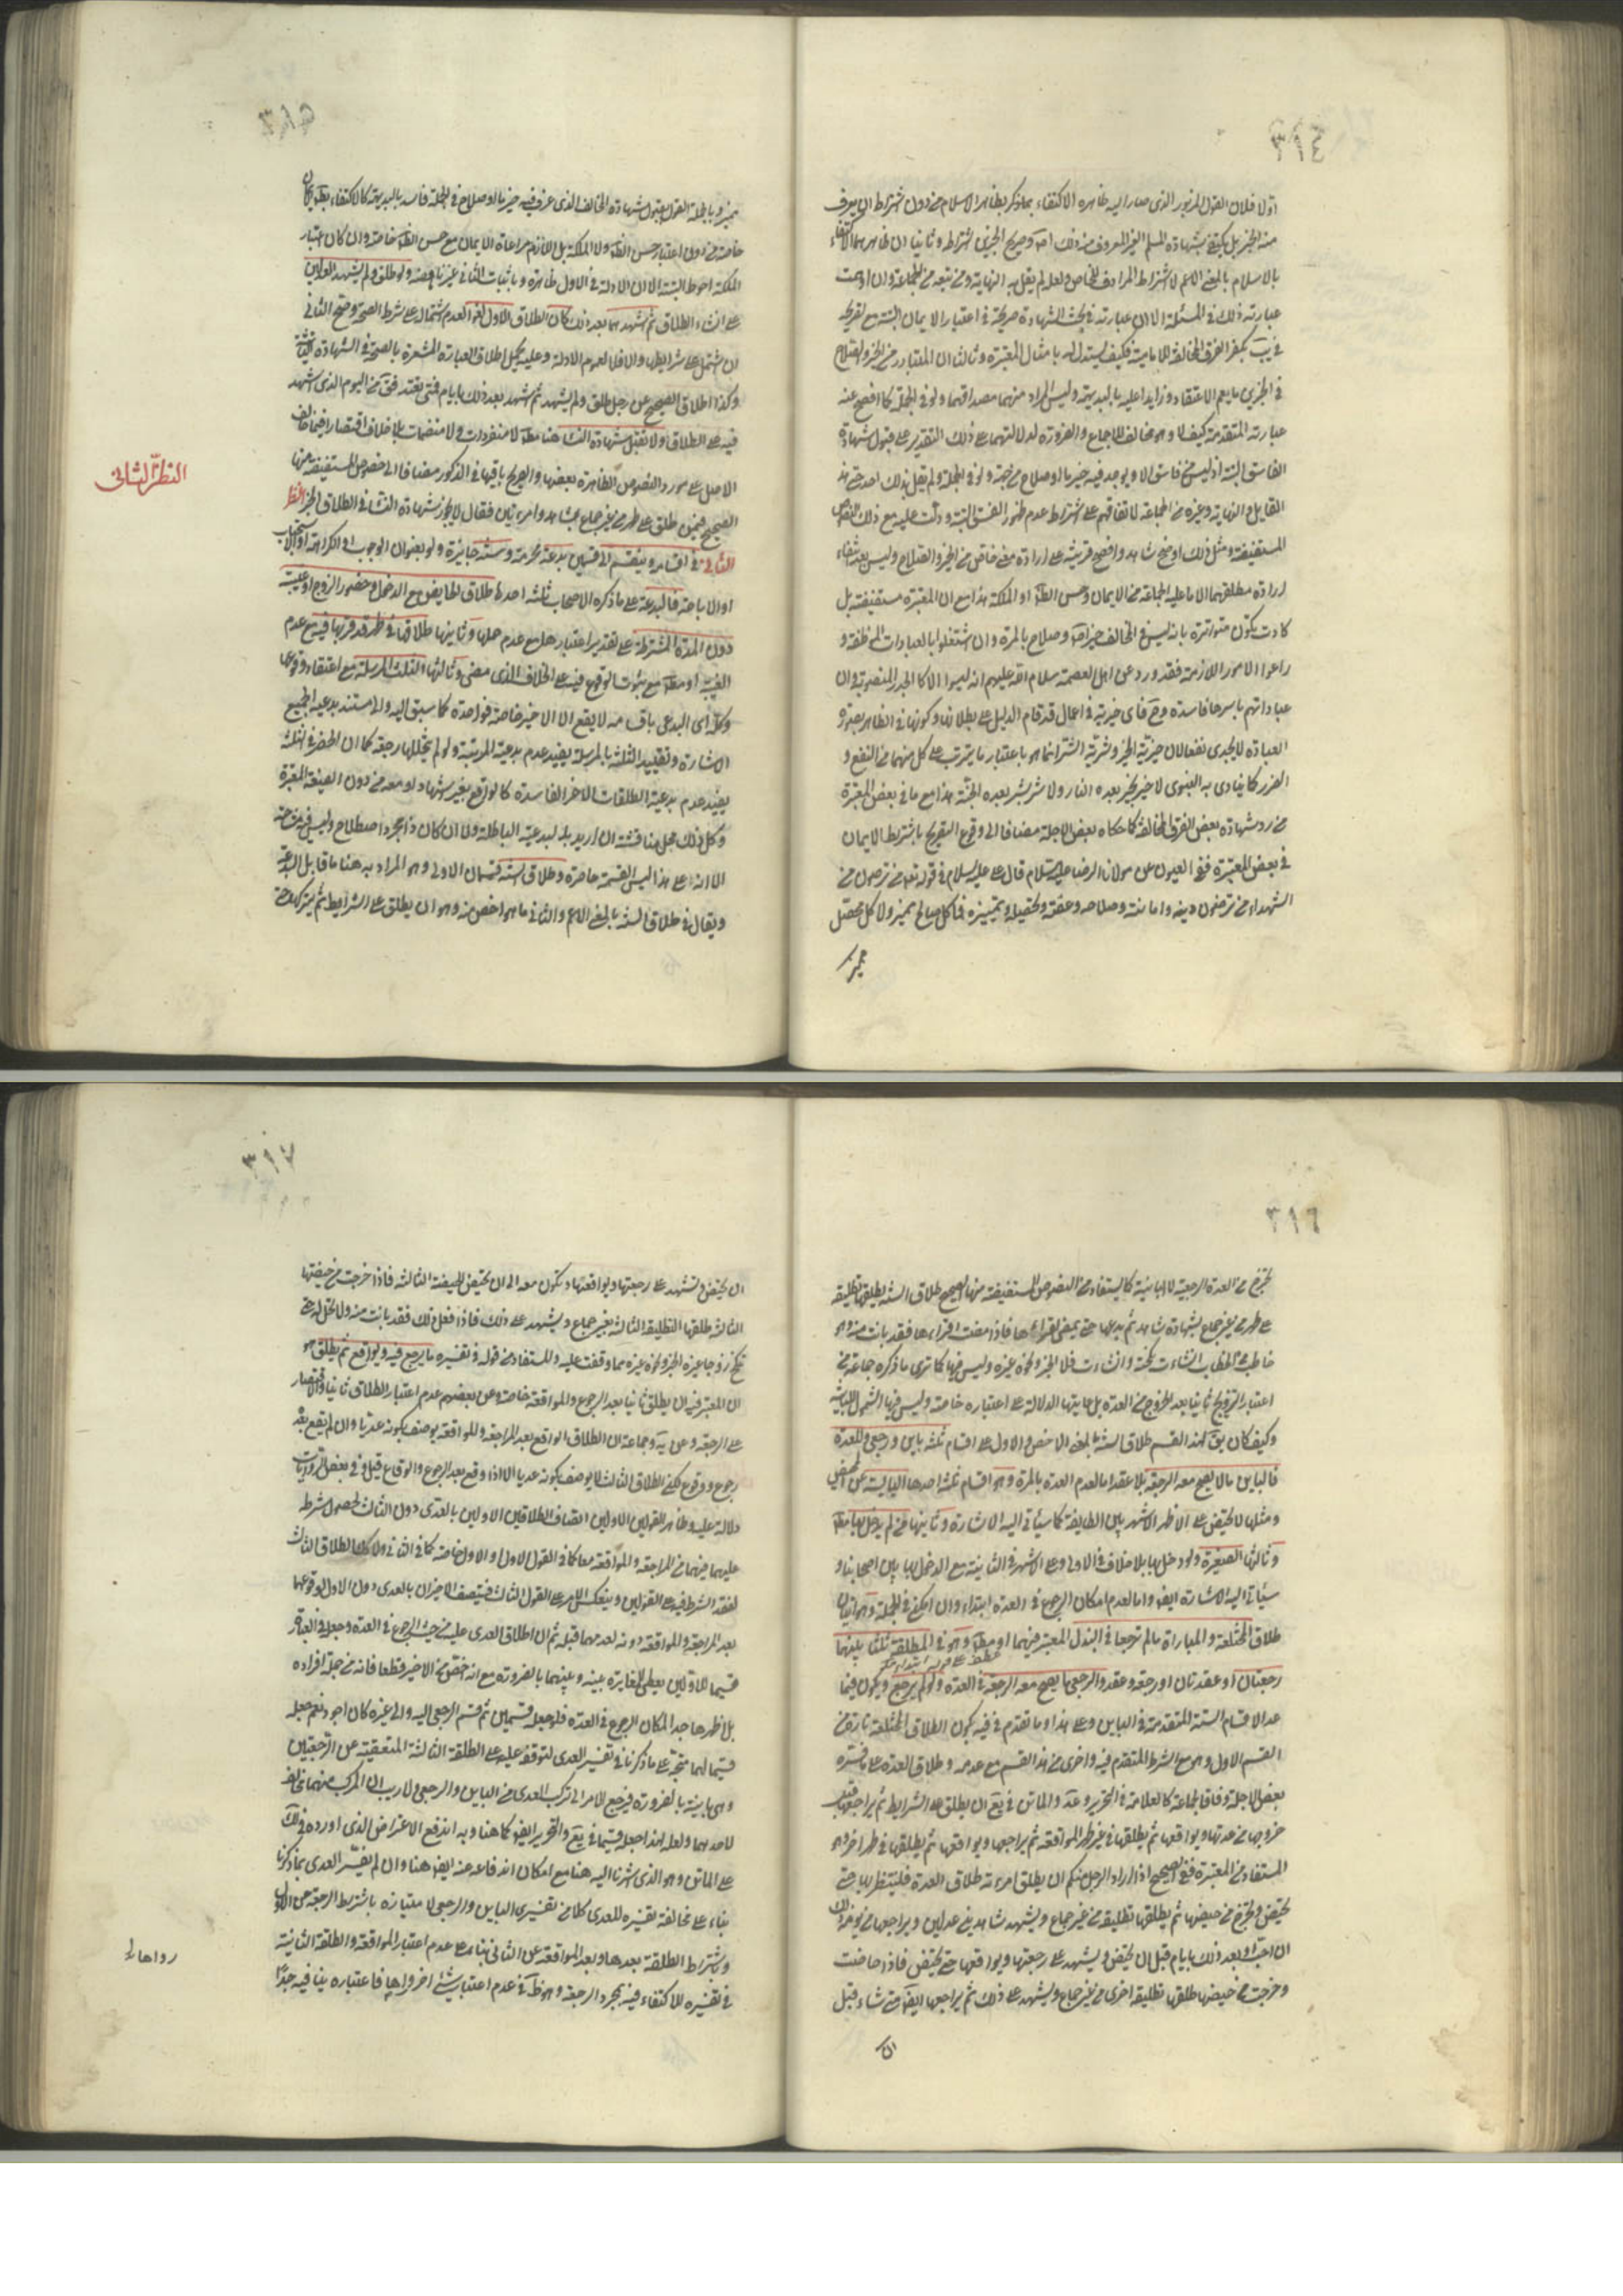 ٣١٤
اولا فلان القول المزبور الذي صار اليه ظاهره الاكتفاء بما ذكر بظاهر الاسلام من دون اشتراط ان يعرف
منه الخير بل يكتفي بشهادة المسلم الغير المعروف منه ذلك وصريح الخبرين اشتراطه وثانيا ان ظاهرهما الاكتفاء
بالاسلام بالمعنى الاعم لا اشتراط المرادف الخاص ولعله لم يقل به النهاية ومن تبعه من الجماعة وان اوهمت
عبارته ذلك في المسئلة الا ان عبارته في بحث الشهادة صريحة في اعتبار الايمان البتة مع تصريحه
بكفر الفرق المخالفة للامامية فكيف يستدل له بامثال المعتبرة وثالثا ان المتبادر من الخير والصلاح
في الخبرين ما يعم الاعتقاد وزايدا عليه بالبديهة وليس المراد منهما مصداقهما ولو في الجملة كما افصح عنه
عبارته المتقدمة كيف لا وهو مخالف للاجماع والضرورة لدلالتهما على ذلك التقدير على قبول شهادة
الفاسق البتة اذ ليس من فاسق الا ويوجد فيه خير ما او صلاح من جهة ولو في الجملة ولم يقل بذلك احد حتى
القايل في النهاية وغيره من الجماعة لاتفاقهم على اشتراط عدم ظهور الفسق البتة ودلت عليه مع ذلك النصوص
المستفيضة ومثل ذلك اوضح شاهد وافصح قرينة على ارادة معنى خاص من الخير والصلاح وليس بعد انتفاء
ارادة مطلقهما الا ما عليه الجماعة من الايمان وحسن الظاهر او الملكة هذا مع ان المعتبرة مستفيضة بل
كادت تكون متواترة بانه ليس في المخالف خير وصلاح بالمرة وان اشتغلوا بالعبادات الموظفة و
راعوا الامور اللازمة فقد ورد عن اهل العصمة سلام الله عليهم انه ليسوا الا كالجدر المنصوبة وان
عباداتهم باسرها فاسدة وح فاي خيرية في اعمال قد قام الدليل على بطلانها وكونها في الظاهر بصورة
العبادة لا يجدي نفعا لان خيرية الخير وشرية الشر انما هو باعتبار ما يترتب على كل منهما من النفع و
الضرر كما ينادي به النبوي لا خير بخير بعده النار ولا شر بشر بعده الجنة هذا مع ما في بعض المعتبرة
من رد شهادة بعض الفرق المخالفة كما حكاه بعض الاجلة مضافا الى وقوع التصريح باشتراط الايمان
في بعض المعتبرة ففي العيون عن مولانا الرضا عليه السلام قال علي عليه السلام في قوله تعالى ممن ترضون من
الشهداء من ترضون دينه وامانته وصلاحه وعفته وتحصيله وتمييزه فما كل صالح مميز ولا كل محصل
مميز
بميز وبالجملة القول بقبول شهادة المخالف الذي عرف فيه خير ما او صلاح في الجملة فاسد بالبديهة كالاكتفاء
خاصة من دون اعتبار حسن الظاهر ولا الملكة بل اللازم مراعاة الايمان مع حسن الظاهر خاصة وان كان اعتبار
الملكة احوط البتة الا ان الادلة في الاول ظاهرة وباثبات الثاني غير ناهضة ولو طلق ولم يشهد العدلين
على انشاء الطلاق ثم اشهدهما بعد ذلك كان الطلاق الاول لغوا لعدم اشتماله على شرط الصحة وصح الثاني
ان اشتمل على شرايطها والا فلا لعموم الادلة وعليه يحمل اطلاق العبارة المشعرة بالصحة في الشهادة الثانية
وكذا اطلاق الصحيح عن رجل طلق ولم يشهد ثم اشهد بعد ذلك بايام فمتى تعتد فقال من اليوم الذي اشهد
فيه على الطلاق ولا تقبل شهادة النساء هنا مطلقا لا منفردات ولا منضمات بلا خلاف اقتصارا فيما خالف
الاصل على مورد النصوص الظاهرة بعضها والصريح باقيها في الذكور مضافا الى خصوص المستفيضة منها
الصحيح فيمن طلق على طهر من غير جماع بشاهد وامراتين فقال لا يجوز شهادة النساء في الطلاق الخبر النظر
الثاني في اقسامه وينقسم الى قسمين بدعة محرمة وسنة جايزة ولو بعنوان الوجوب او الكراهة او الاستحباب
او الاباحة فالبدعة على ما ذكره الاصحاب ثلثة احدها طلاق الحايض مع الدخول وحضور الزوج او غيبته
دون المدة المشترطة على تقدير اعتبارها مع عدم حملها وثانيها طلاقها في طهر قد قربها فيه مع عدم
الغيبة او مطلقا مع ثبوت الوقوع فيه على الخلاف الذي مضى وثالثها الثلث المرسلة مع اعتقاد وقوعها
وكله اي البدعي باقسامه لا يقع الا الاخير خاصة فواحدة كما سبق اليه والى مستند بدعية الجميع
الاشارة وتقييد الثلثة بالمرسلة يفيد عدم بدعية المرتبة ولو لم يتخللها رجعة كما ان الحصر في الثلثة
يفيد عدم بدعية الطلقات الاخر الفاسدة كالواقع بغير اشهاد او معه من دون الصيغة المعتبرة
وكل ذلك محل مناقشة ان اريد بالبدعية الباطلة ولا ان كان ذا مجرد اصطلاح وليس فيه مشاحة
الا انه على هذا ليس القسمة حاصرة وطلاق السنة قسمان الاولى وهو المراد به هنا ما قابل البدعة
ويقال له طلاق السنة بالمعنى الاعم والثاني ما هو اخص منه وهو ان يطلق على الشرايط ثم يتركها حتى
النظر الثاني
٣١٦
تخرج من العدة الرجعية لا البائنة كما يستفاد من النصوص المستفيضة منها الصحيح طلاق السنة يطلقها تطليقة
على طهر من غير جماع بشهادة شاهدين ثم يدعها حتى يمضي اقراءها فاذا مضت اقراءها فقد بانت منه وهو
خاطب من الخطاب ان شاءت نكحته وان شاءت فلا الخبر ونحوه غيره وليس فيها كما ترى ما ذكره جماعة من
اعتبار التزويج ثانيا بعد الخروج من العدة بل غايتها الدلالة على اعتباره خاصة وليس فيها الشمول للبائنة
وكيف كان يق لهذا القسم طلاق السنة بالمعنى الاخص والاول على اقسام ثلثة باين ورجعي وللعدة
فالباين ما لا يصح معه الرجعة بلا عقد اما لعدم العدة بالمرة وهو اقسام ثلثة احدها اليايسة عن المحيض
ومثلها لا تحيض على الاظهر الاشهر بين الطايفة كما سياتي اليه الاشارة وثانيها من لم يدخل بها مطلقا
وثالثها الصغيرة ولو دخل بها بلا خلاف في الاولى وعلى الاشهر في الثانية مع الدخول بها بين اصحابنا و
سياتي اليه الاشارة ايضا واما لعدم امكان الرجوع في العدة ابتداء وان امكن في الجملة وهو اثنان
طلاق المختلعة والمباراة ما لم ترجعا في البذل المعتبر فيهما او مطلقا وهو في المطلقة ثلثا بينهما
رجعتان او عقدتان او رجعة وعقد والرجعي ما يصح معه الرجعة في العدة ولو لم يرجع ويكون فيما
عدا الاقسام الستة المتقدمة في الباين وعلى هذا وما تقدم فيه يكون الطلاق المختلعة تارة من
القسم الاول وهو مع الشرط المتقدم فيه واخرى من هذا القسم مع عدمه وطلاق العدة على ما فسره
بعض الاجلة وفاقا لجماعة كالعلامة في التحرير وعد والماتن في يع ان يطلق على الشرايط ثم يراجعها قبل
خروجها من عدتها ويواقعها ثم يطلقها في غير طهر المواقعة ثم يراجعها ويواقعها ثم يطلقها في طهر اخر وهو
المستفاد من المعتبرة ففي الصحيح اذا اراد الرجل منكم ان يطلق امرءته طلاق العدة فلينتظر بها حتى
تحيض وتخرج من حيضها ثم يطلقها تطليقة من غير جماع ويشهد شاهدين عدلين ويراجعها من يومه ذلك
ان احب او بعد ذلك بايام قبل ان تحيض ويشهد على رجعتها ويواقعها حتى تحيض فاذا حاضت
وخرجت من حيضها طلقها تطليقة اخرى من غير جماع ويشهد على ذلك ثم يراجعها ايضا متى شاء قبل
ان
٣١٧
ان تحيض وتشهد على رجعتها ويواقعها وتكون معه الى ان تحيض الحيضة الثالثة فاذا خرجت من حيضتها
الثالثة طلقها التطليقة الثالثة بغير جماع ويشهد على ذلك فاذا فعل ذلك فقد بانت منه ولا تحل له حتى
تنكح زوجا غيره الخبر ونحوه غيره مما وقفت عليه والمستفاد من قوله وتفسيره ما يرجع فيه ويواقع ثم يطلق هو
ان المعتبر فيه ان يطلق ثانيا بعد الرجوع والمواقعة خاصة وعن بعضهم عدم اعتبار الطلاق ثانيا والاقتصار
على الرجعة وعن يه وجماعة ان الطلاق الواقع بعد المراجعة والمواقعة يوصف بكونه عديا وان لم يقع بعده
رجوع ووقوع لكن الطلاق الثالث لا يوصف بكونه عديا الا اذا وقع بعد الرجوع والوقاع قيل وفي بعض الروايات
دلالة عليه وظاهر القولين الاولين اتصاف الطلاقين الاولين بالعدي دون الثالث لحصول شرط
عليهما فيهما من المراجعة والمواقعة معا كما في القول الاول او الاول خاصة كما في الثاني ولا كذلك الطلاق الثالث
لفقد الشرط فيه على القولين وينعكس الامر على القول الثالث فيتصف الاخيران بالعدي دون الاول لوقوعهما
بعد المراجعة والمواقعة دونه لعدمهما قبله ثم ان اطلاق العدي عليه من حيث الرجوع في العدة وجعله في العبارة
قسيما للاولين يعطي المغايرة بينه وبينهما بالضرورة مع انه اخص من الاخير قطعا فانه من جملة افراده
بل اظهرها حيث امكان الرجوع في العدة فلو جعله قسمين ثم قسم الرجعي اليه والى غيره كان اجود نعم جعله
قسيما لهما متجه على ما ذكرنا في تفسير العدي لتوقفه عليه على الطلقة الثالثة المتعقبة عن الرجعتين
وهي باينة بالضرورة فيرجع الامر الى تركب العدي من الباين والرجعي ولا ريب ان المركب منهما مخالف
لاحدهما ولعله لهذا جعله قسيما في يع والتحرير ايضا كما هنا وبه اندفع الاعتراض الذي اورده في لك
على الماتن وهو الذي اشرنا اليه هنا مع امكان اندفاعه عنه ايضا هنا وان لم يفسر العدي بما ذكرنا
بناء على مخالفة تفسيره للعدي كلا من تفسيري الباين والرجعي لامتيازه باشتراط الرجعة عن الاول
وباشتراط الطلقة بعدها وبعد المواقعة عن الثاني بناء على عدم اعتبار المواقعة والطلقة الثانية
في تفسيره للاكتفاء فيه بمجرد الرجعة وهو ظاهر في عدم اعتبار شيء اخر وراها فاعتباره ينافيه جدا